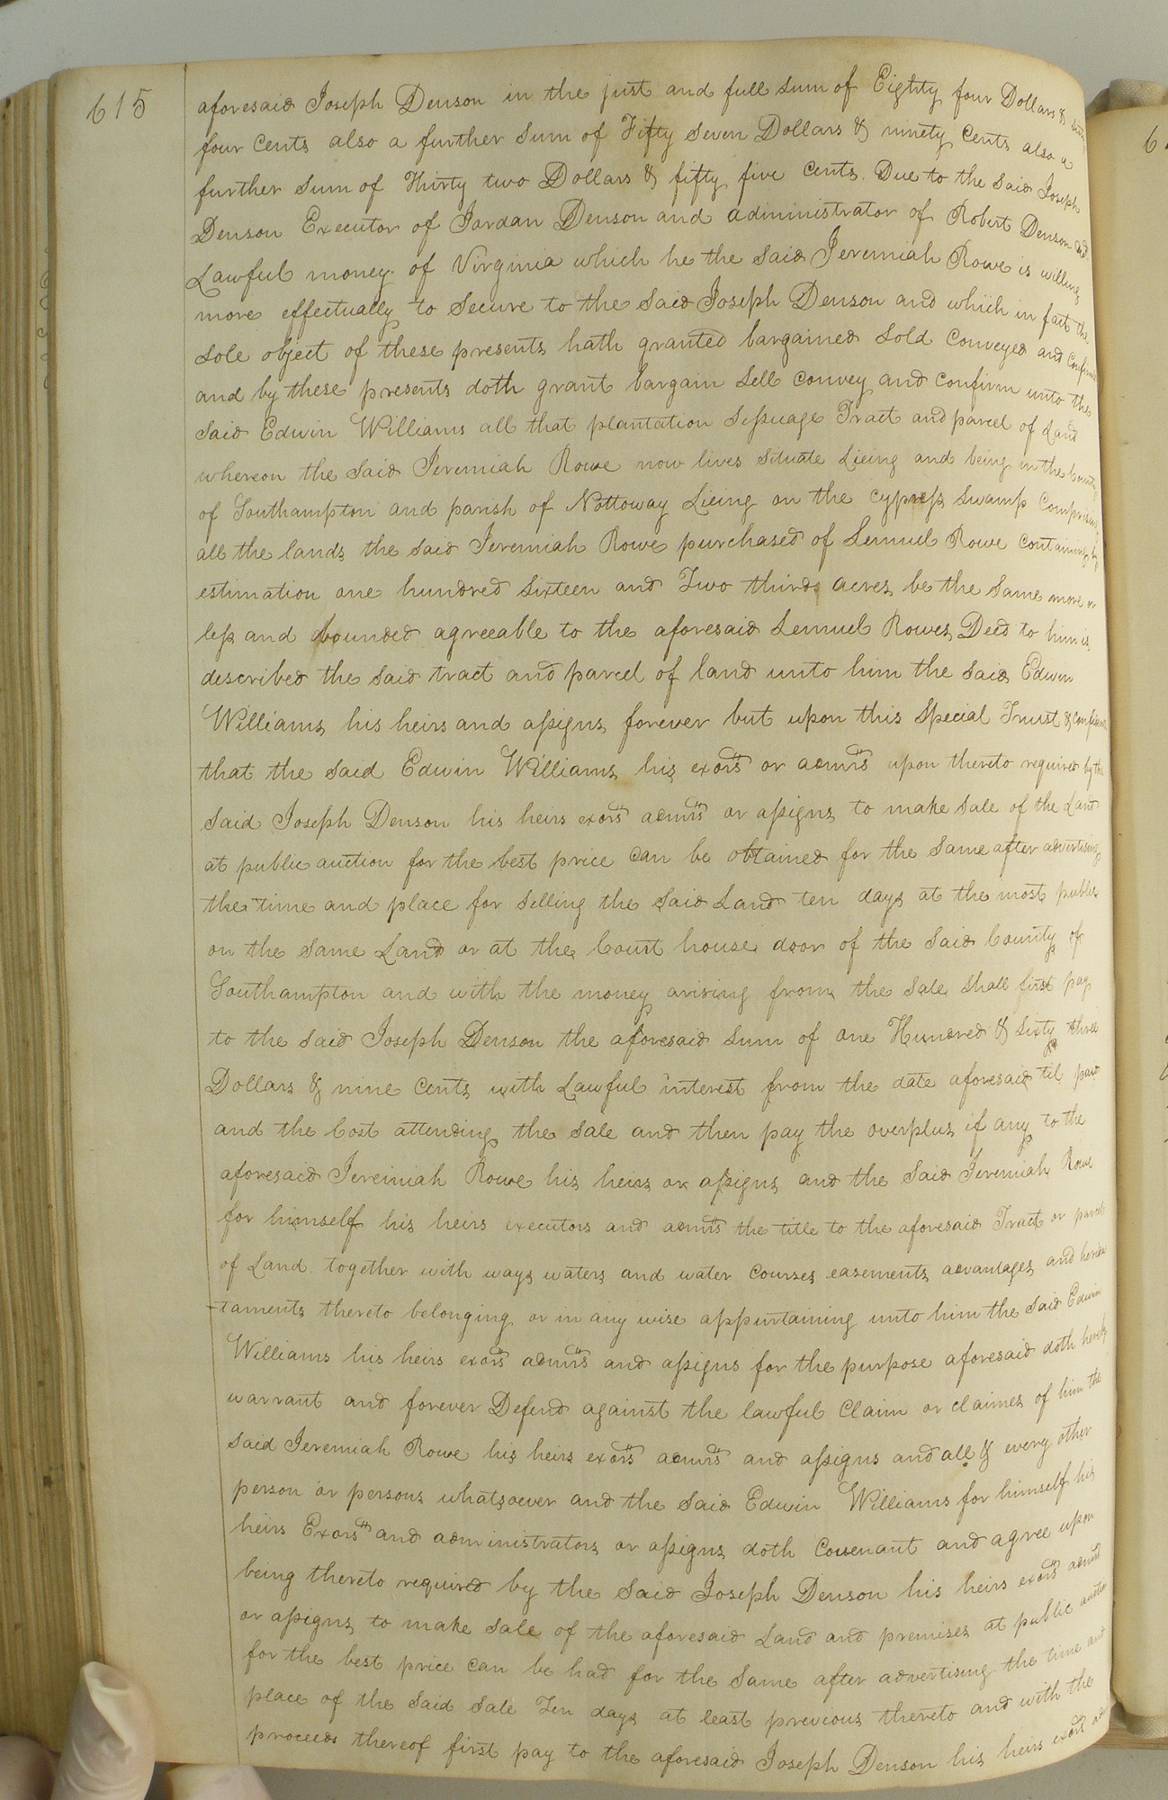 615
aforesaid Joseph Denson in the just and full sum of Eighty four Dollars &
four Cents also a further Sum of Fifty Seven Dollars & ninety Cents also a
further Sum of Thirty two Dollars & fifty five Cents. Due to the Said Joseph
Denson Executor of Jordan Denson and administrator of Robert Denson
Lawful money of Virginia which he the Said Jeremiah Rowe is willing
more effectually to Secure to the Said Joseph Denson and which in fact the
Sole object of these presents hath granted bargained Sold Conveyed and Confirmed
and by these presents doth grant bargain Sell Convey and Confirm unto the
Said Edwin Williams all that plantation Tract and parcel of Land
whereon the Said Jeremiah Rowe now lives Situate Lieing and being in the County
of Southampton and parish of Nottoway Lieing on the Cypress Swamp Comprising
all the lands the Said Jeremiah Rowe purchased of Lemuel Rowe Containing by
estimation one hundred Sixteen and Two thirds acres be the Same more or
less and bounded agreeable to the aforesaid Lemuel Rowes Deed to him is
described the Said tract and parcel of land unto him the Said Edwin
Williams his heirs and assigns forever but upon this Special Trust &
that the Said Edwin Williams his exors or admrs upon thereto required by the
Said Joseph Denson his heirs exors admrs or assigns to make Sale of the Land
at public auction for the best price Can be obtained for the Same after advertising
the time and place for Selling the Said Land ten days at the most public
on the Same Land or at the Court house door of the Said County of
Southampton and with the money arising from the Sale Shall first pay
to the Said Joseph Denson the aforesaid Sum of one Hundred & Sixty three
Dollars & nine Cents with Lawful interest from the date aforesaid til paid
and the Cost attending the Sale and then pay the overplus if any to the
aforesaid Jeremiah Rowe his heirs or assigns and the Said Jeremiah Rowe
for himself his heirs executors and admrs the title to the aforesaid Tract or parcel
of Land together with ways waters and water Courses easements advantages and heredi
-taments thereto belonging or in any wise appurtaining unto him the Said Edwin
Williams his heirs exors admrs and assigns for the purpose aforesaid doth hereby
warrant and forever Defend against the lawful Claim or claimes of him the
Said Jeremiah Rowe his heirs exors admrs and assigns and all & every other
person or persons whatsoever and the Said Edwin Williams for himself his
heirs Exors and administrators or assigns doth Covenant and agree upon
being thereto required by the Said Joseph Denson his heirs exors admrs
or assigns to make Sale of the aforesaid Land and premises at public auction
for the best price Can be had for the Same after advertising the time and
place of the Said Sale Ten days at least previous thereto and with the
proceeds thereof first pay to the aforesaid Joseph Denson his heirs exors